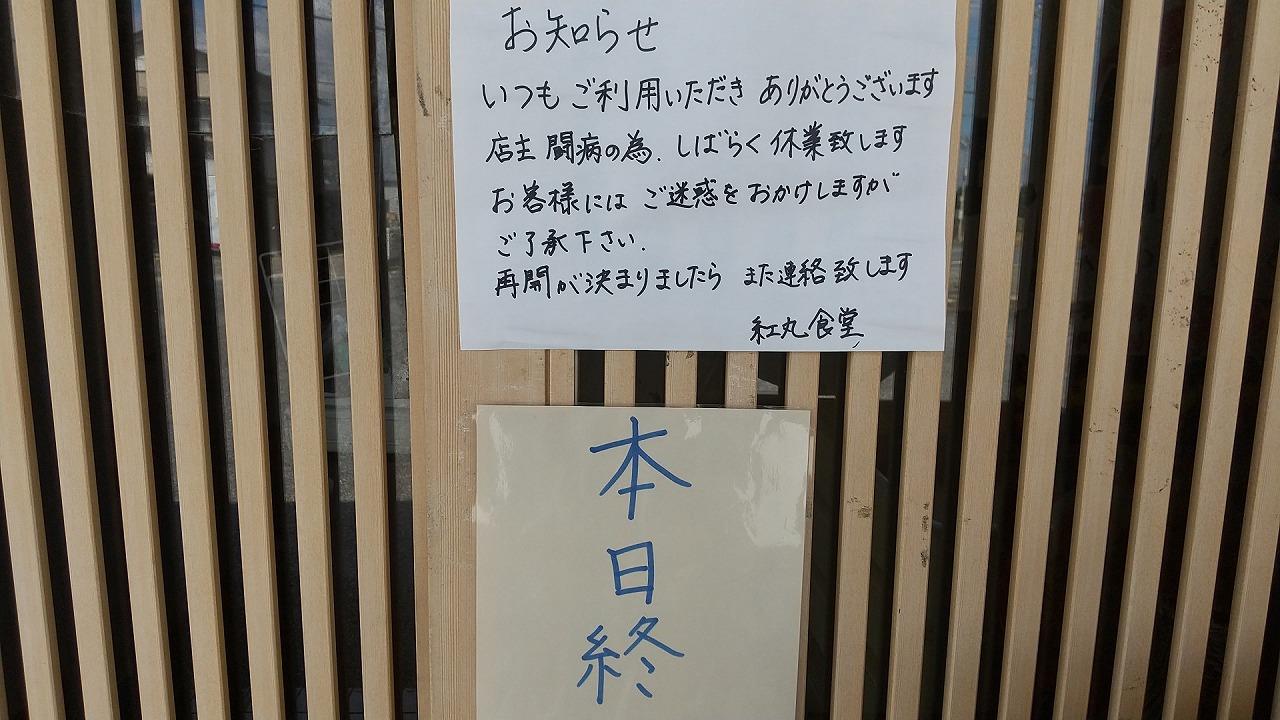 お知らせ
いつもご利用いただき ありがとうございます
店主 闘病の為、しばらく休業致します
お客様には ご迷惑をおかけしますが
ご了承下さい.
再開が決まりましたら また連絡致します
紅丸食堂
本日終